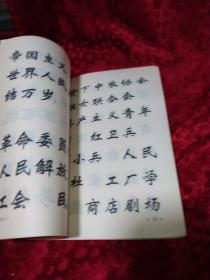 帝国主义
世界人民
结万岁
革命委员
人民解放
工会民
下中农协会
女联合会
产主义青年
红卫兵
小兵人民
社工厂学
商店剧场